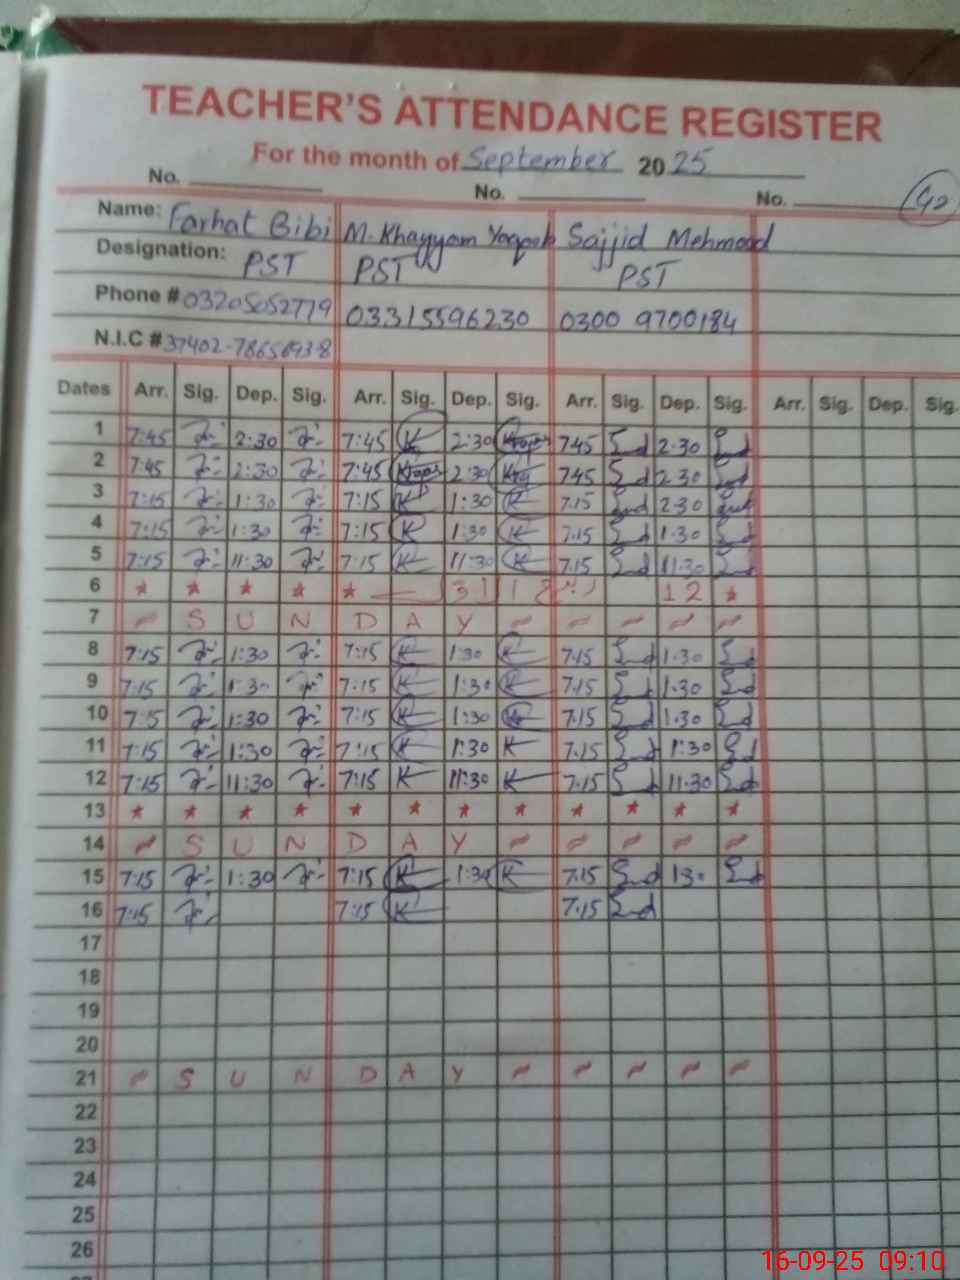 TEACHER'S ATTENDANCE REGISTER
For the month of September 2025
No. No. No. 42
Name: Farhat Bibi M. Khayyam Yaqoob Sajjid Mehmood
Designation: PST PST PST
Phone # 03205052779 03315596230 0300 9700184
N.I.C #
Dates Arr. Sig. Dep. Sig. Arr. Sig. Dep. Sig. Arr. Sig. Dep. Sig. Arr. Sig. Dep. Sig.
1 7:45 2:30 7:45 K 2:30 745 2.30
2 7:45 2:30 7:45 2:30 745 2.30
3 7:15 1:30 7:15 K 1:30 K 7.15 2.30
4 7:15 1:30 7:15 K 1:30 K 7.15 1.30
5 7:15 11:30 7:15 K 11:30 K 7.15 11.30
6 * * * * * 12 *
7 ~ S U N D A Y ~ ~ ~ ~ ~
8 7:15 1:30 7:15 K 1:30 K 7.15 1.30
9 7:15 1:30 7:15 K 1:30 K 7.15 1.30
10 7:15 1:30 7:15 K 1:30 K 7.15 1.30
11 7:15 1:30 7:15 K 1:30 K 7.15 1:30
12 7:15 11:30 7:15 K 11:30 K 7.15 11.30
13 * * * * * * * * * * * *
14 ~ S U N D A Y ~ ~ ~ ~ ~
15 7:15 1:30 7:15 K 1:30 K 7.15 130
16 7:15 7:15 K 7.15
17
18
19
20
21 ~ S U N D A Y ~ ~ ~ ~ ~
22
23
24
25
26
16-09-25 09:10